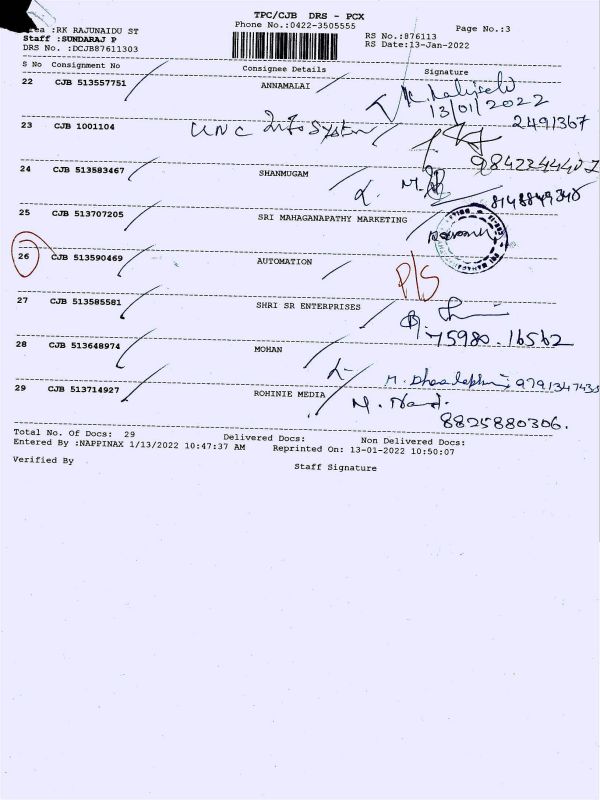 TPC/CJB DRS - PCX
Area :RK RAJUNAIDU ST
Phone No.:0422-3505555
Page No.:3
Staff :SUNDARAJ P
RS No.:876113
DRS No. :DCJB87611303
RS Date:13-Jan-2022
S No Consignment No Consignee Details Signature
22 CJB 513557751 ANNAMALAI
13/01/2022
2491367
23 CJB 1001104 UNC Info System
24 CJB 513583467 SHANMUGAM
8148849340
25 CJB 513707205 SRI MAHAGANAPATHY MARKETING
26 CJB 513590469 AUTOMATION P/S
27 CJB 513585581 SHRI SR ENTERPRISES
75980.16562
28 CJB 513648974 MOHAN
29 CJB 513714927 ROHINIE MEDIA
8825880306.
Total No. Of Docs: 29 Delivered Docs: Non Delivered Docs:
Entered By :NAPPINAX 1/13/2022 10:47:37 AM Reprinted On: 13-01-2022 10:50:07
Verified By Staff Signature